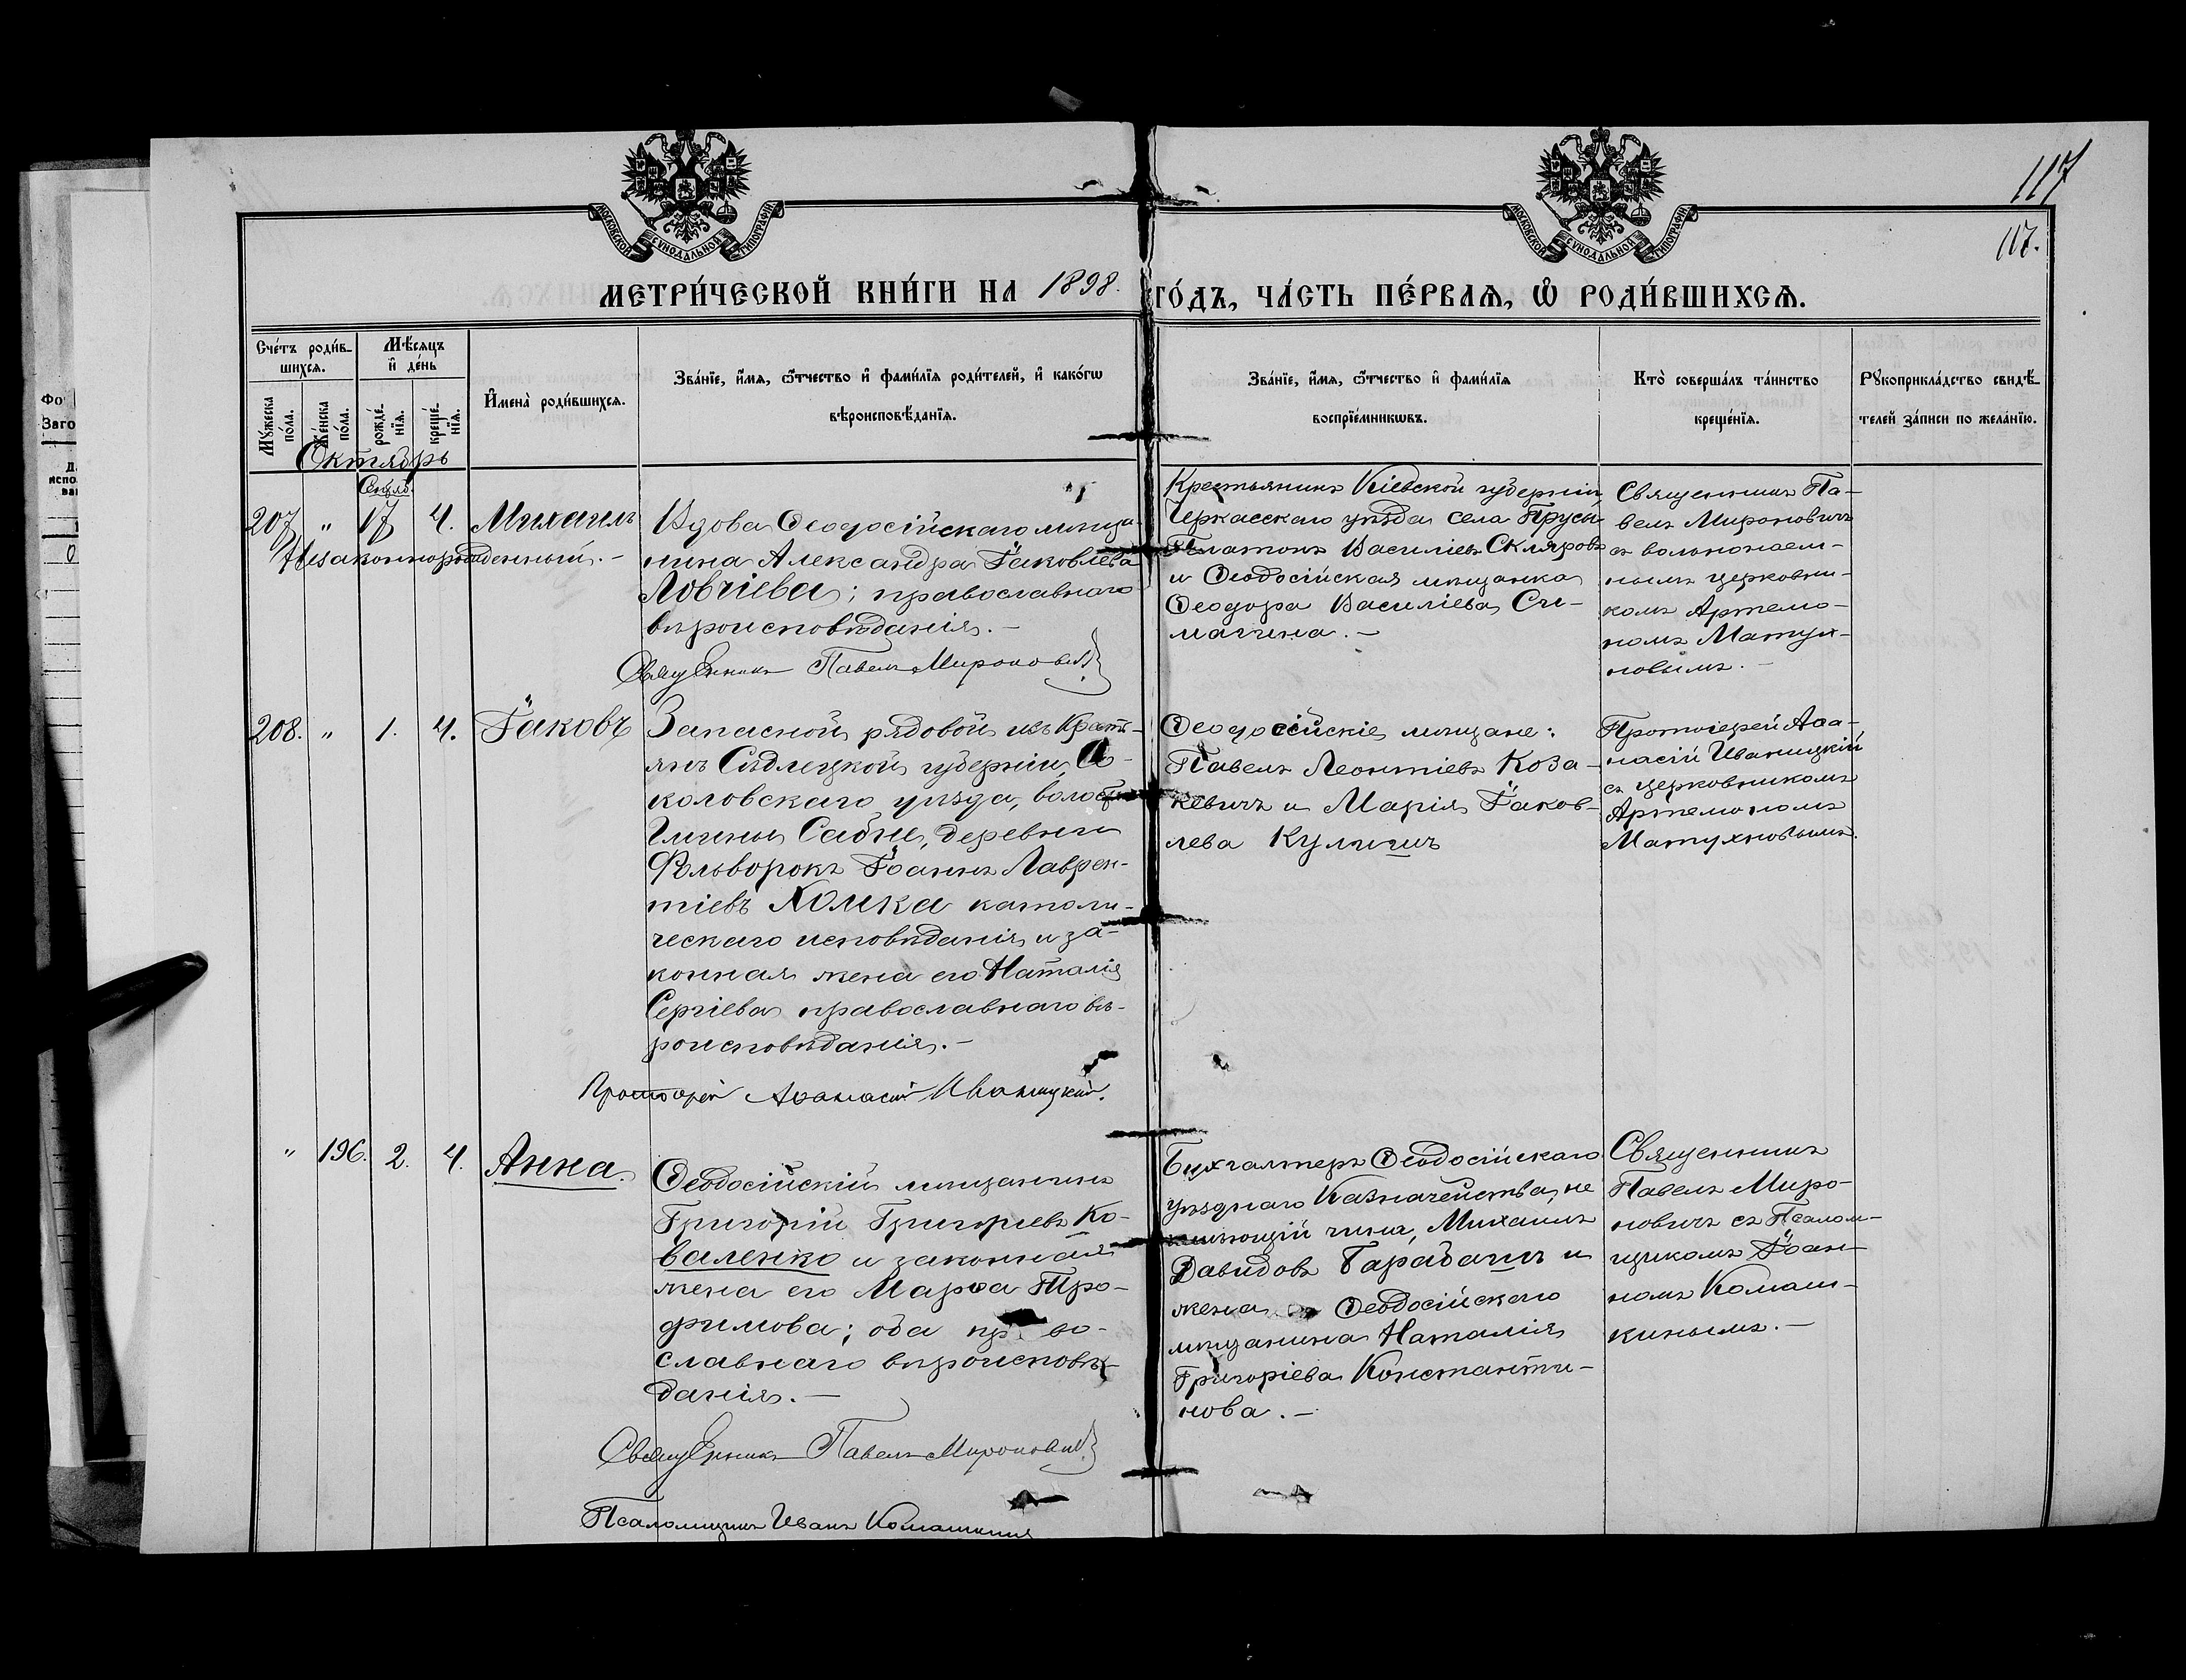 117
117.
МОСКОВСКОЙ СѴНОДАЛЬНОЙ ТИПОГРАФІИ
МОСКОВСКОЙ СѴНОДАЛЬНОЙ ТИПОГРАФІИ
МЕТРИ́ЧЕСКОЙ КНИ́ГИ НА 1898. ГО́ДЪ, ЧА́СТЬ ПЕ́РВАЯ, Ѽ РОДИ́ВШИХСѦ.
Сче́тъ роди́в-
шихсѧ.
Мѣ́сяцъ
и҆ де́нь
Мꙋ́жеска
по́ла.
Же́нска
по́ла.
рожде́-
нїѧ.
креще́-
нїѧ.
И҆мена̀ роди́вшихсѧ.
Зва́нїе, и҆́мѧ, ѻ҆́тчество и҆ фами́лїѧ роди́телей, и҆ како́гѡ
вѣроисповѣ́данїѧ.
Зва́нїе, и҆́мѧ, ѻ҆́тчество и҆ фами́лїѧ
воспрїе́мникѡвъ.
Кто̀ соверша́лъ та́инство
креще́нїѧ.
Рꙋкоприкла́дство свидѣ́-
телей за́писи по жела́нїю.
Октябрь
Сентяб.
207 " 17 4. Михаилъ
Незаконнорожденный. –
Вдова Ѳеодосійскаго мѣща-
нина Александра Іаковлева
Ловчіева; православнаго
вѣроисповѣданія. –
Священникъ Павелъ Мироновичъ
Крестьянинъ Кіевской губерніи,
Черкасскаго уѣзда села Прусы
Платонъ Василіевъ Скляровъ
и Ѳеодосійская мѣщанка
Ѳеодора Василіева Си-
магина. –
Священникъ Па-
велъ Мироновичъ
съ вольнонаем-
нымъ церковни-
комъ Артемо-
номъ Матух-
новымъ. –
208. " 1. 4. Іаковъ
Запасной рядовой изъ Крестъ-
янъ Сѣдлецкой губерніи, Со-
коловскаго уѣзда, волости
Гмины Сабне, деревни
Фольворокъ Іоаннъ Лаврен-
тіевъ Хомка католи-
ческаго исповѣданія и за-
конная жена его Наталія
Сергіева православнаго вѣ-
роисповѣданія. –
Протоіерей Аѳанасій Иваницкій.
Ѳеодосійскіе мѣщане:
Павелъ Леонтіевъ Коза-
кевичъ и Марія Іаков-
лева Кулишъ
Протоіерей Аѳа-
насій Иваницкій
съ церковникомъ
Артемономъ
Матухновымъ.
" 196. 2. 4. Анна.
Ѳеодосійскій мѣщанинъ
Григорій Григорьевъ Ко-
валенко и законная
жена его Марѳа Тро-
фимова; оба пр во-
славнаго вѣроисповѣ-
данія. –
Священникъ Павелъ Мироновичъ
Псаломщикъ Иванъ Комашкинъ
Бухгалтеръ Ѳеодосійскаго
уѣзднаго Казначейства, не
имѣющій чина, Михаилъ
Давидовъ Гарабашъ и
жена Ѳеодосійскаго
мѣщанина Наталія
Григоріева Константи-
нова. –
Священникъ
Павелъ Миро-
новичъ съ Псалом-
щикомъ Іоан-
номъ Комаш-
кинымъ. –